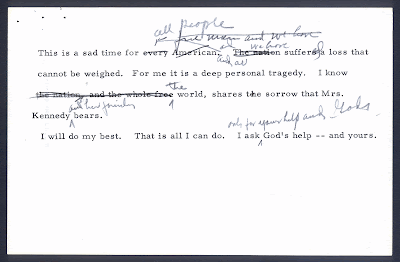 all people
free man and we have
This is a sad time for every American. The nation suffers a loss that
we have
and all
cannot be weighed. For me it is a deep personal tragedy. I know
the nation, and the whole free world, shares the sorrow that Mrs.
the
and her family
Kennedy bears.
ask for your help and God's
I will do my best. That is all I can do. I ask God's help -- and yours.